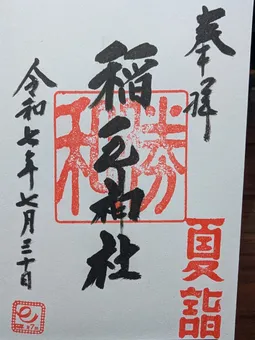 奉拝
稲毛神社
勝和
夏詣
令和七年七月三十日